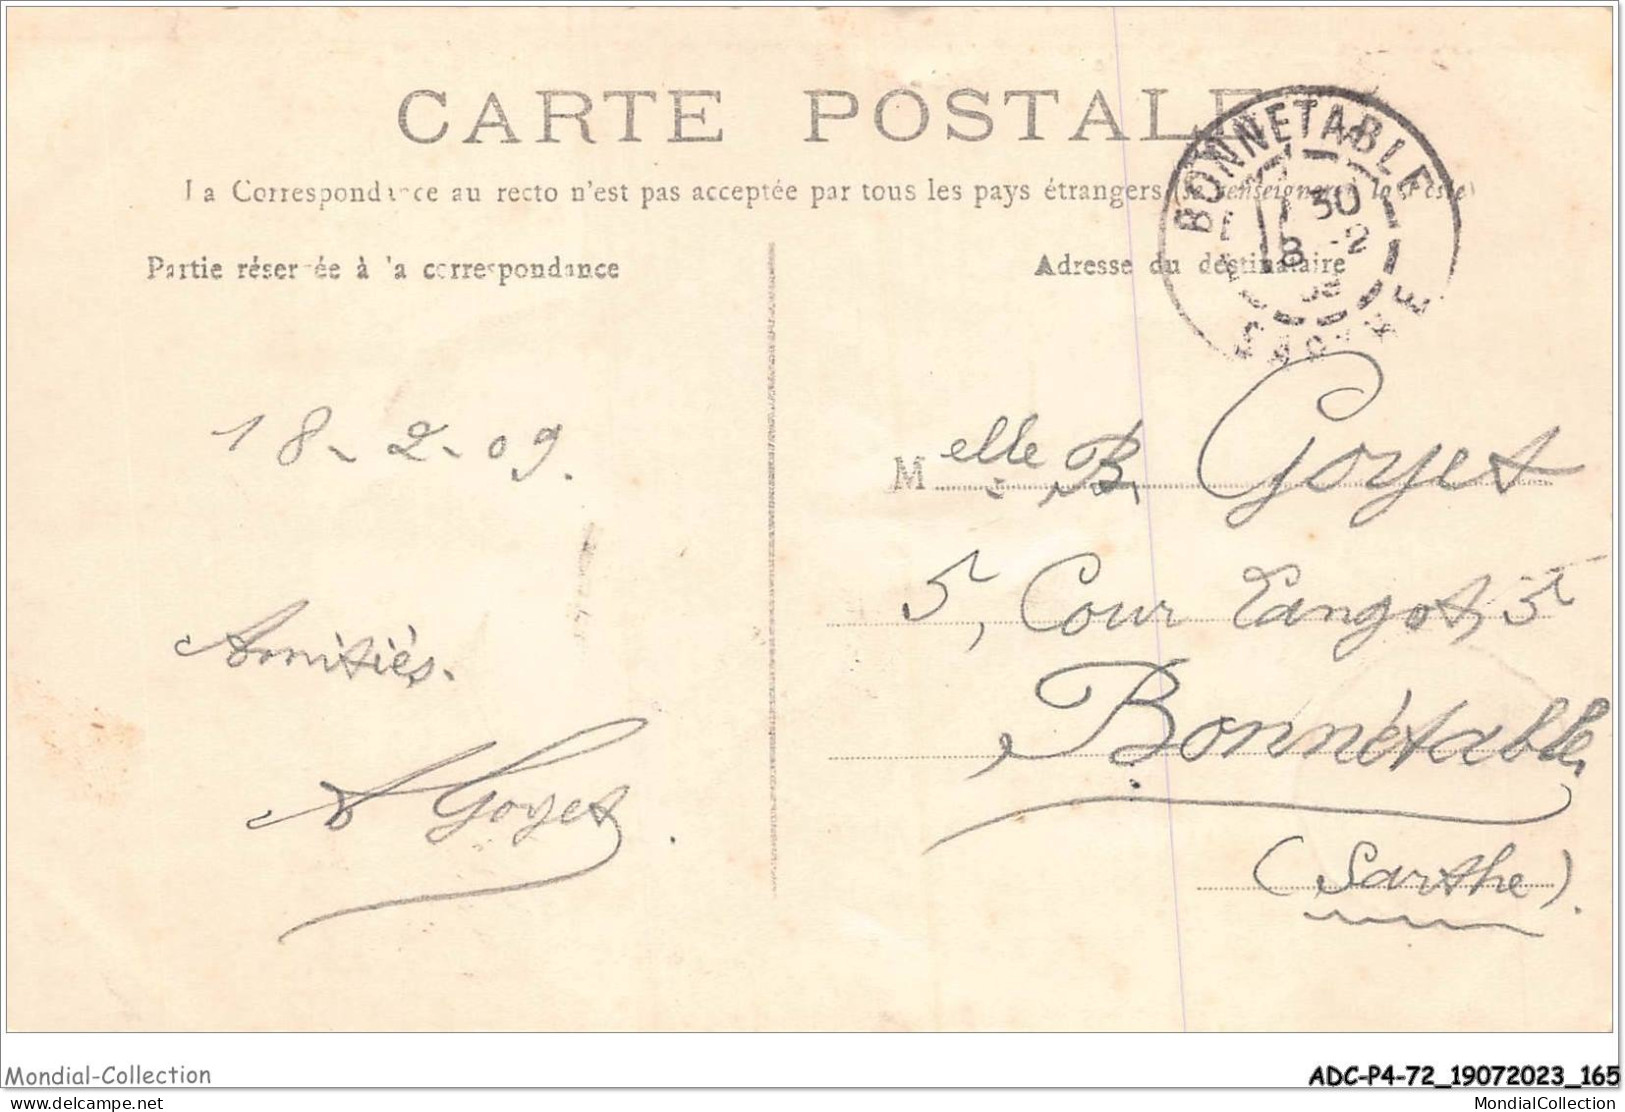 CARTE POSTALE
La Correspondance au recto n'est pas acceptée par tous les pays étrangers (se renseigner à la Poste)
Partie réservée à la correspondance
Adresse du destinataire
BONNÉTABLE
30
18 -2
09
SARTHE
18-2-09.
Amitiés.
A Goyet.
Melle B. Goyet
5, Cour Tangot, 5
Bonnétable
(Sarthe).
Mondial-Collection
ADC-P4-72_19072023_165
delcampe.net
MondialCollection